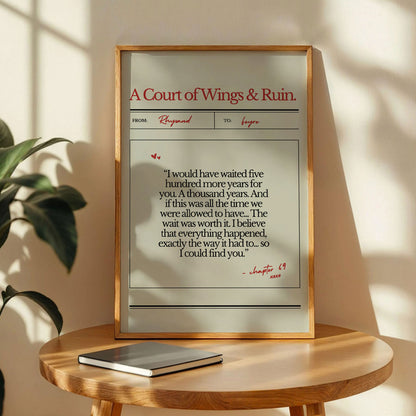 A Court of Wings & Ruin.
FROM: Rhysand TO: feyre
“I would have waited five
hundred more years for
you. A thousand years. And
if this was all the time we
were allowed to have... The
wait was worth it. I believe
that everything happened,
exactly the way it had to... so
I could find you.”
- chapter 69